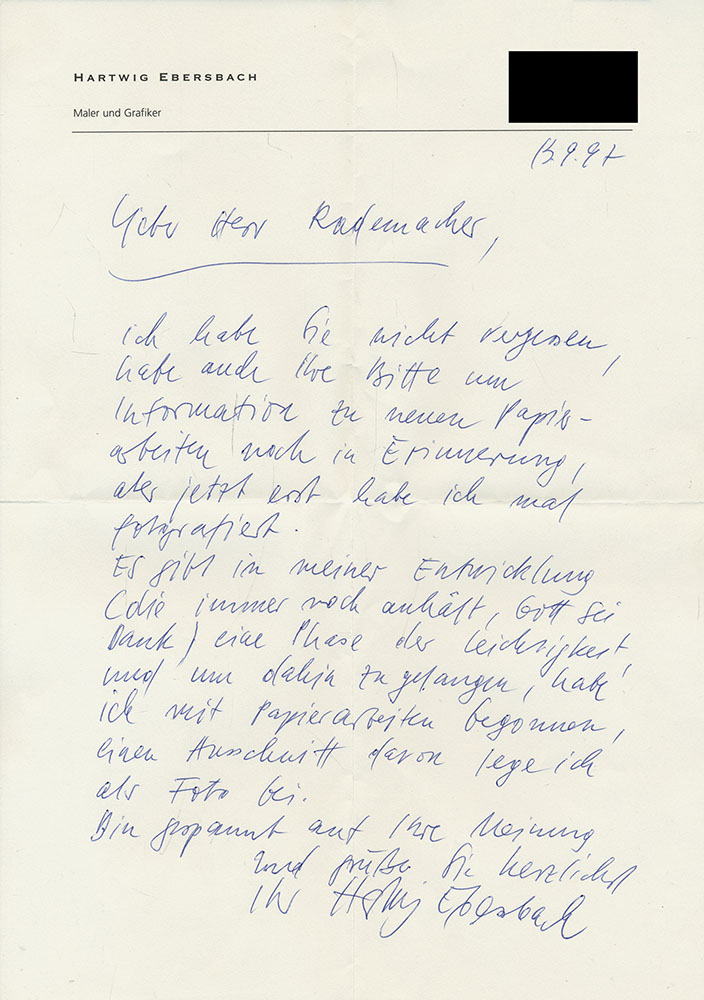 HARTWIG EBERSBACH
Maler und Grafiker
13.9.97
Lieber Herr Rademacher,
ich habe Sie nicht vergessen,
habe auch Ihre Bitte um
Information zu neuen Papier-
arbeiten noch in Erinnerung,
aber jetzt erst habe ich mal
fotografiert.
Es gibt in meiner Entwicklung
(die immer noch anhält, Gott sei
Dank) eine Phase der Leichtigkeit,
und um dahin zu gelangen, habe
ich mit Papierarbeiten begonnen,
einen Ausschnitt davon lege ich
als Foto bei.
Bin gespannt auf Ihre Meinung
und grüße Sie herzlichst
Ihr Hartwig Ebersbach